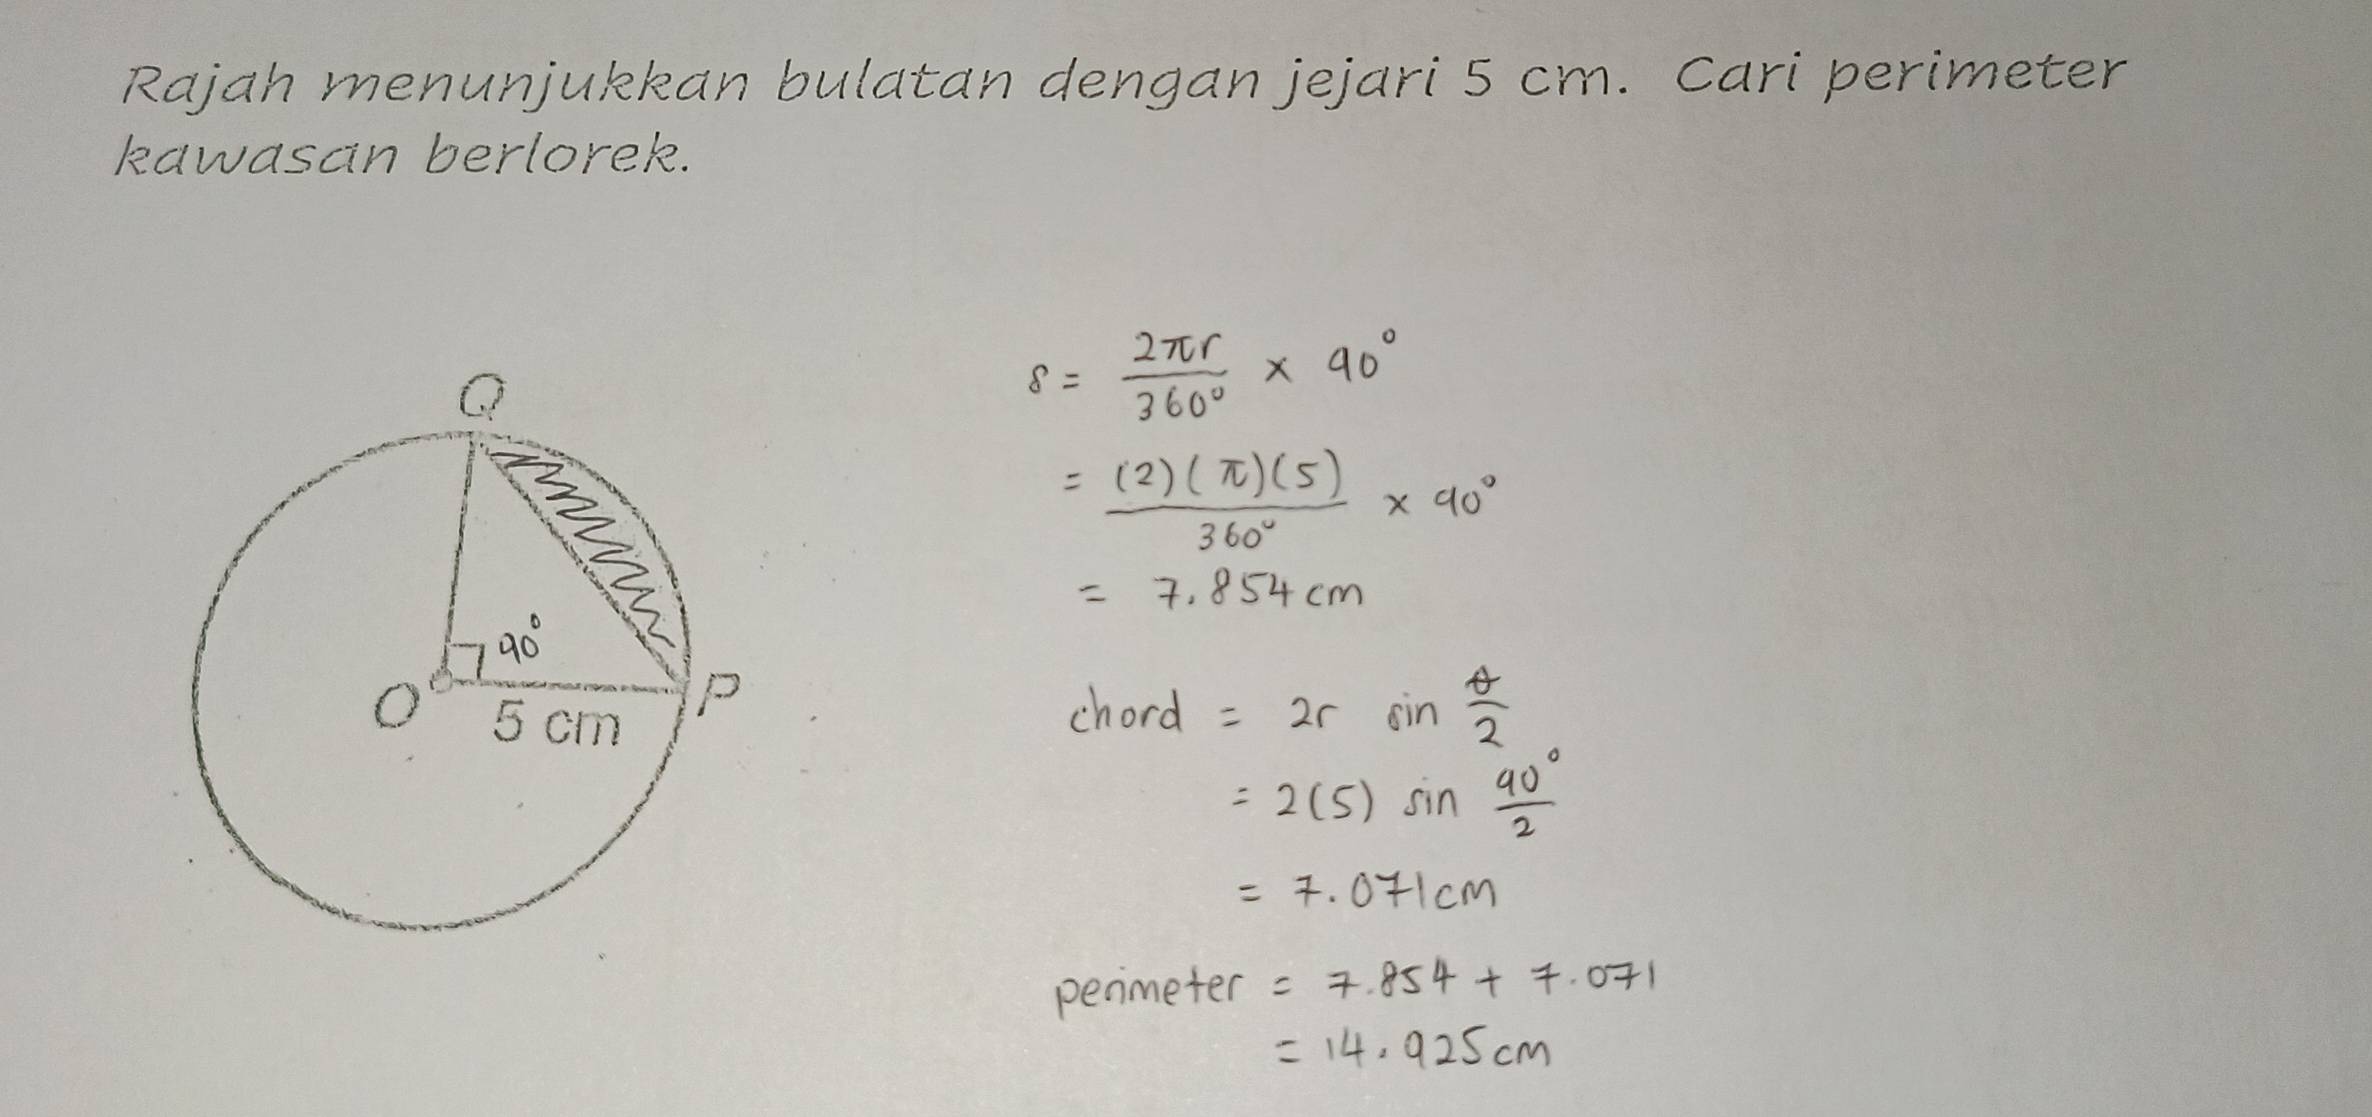 Rajah menunjukkan bulatan dengan jejari 5 cm. Cari perimeter
kawasan berlorek.
Q
90°
O
P
5 cm
s = 2πr / 360° × 90°
= (2)(π)(5) / 360° × 90°
= 7.854 cm
chord = 2r sin θ/2
= 2(5) sin 90°/2
= 7.071 cm
perimeter = 7.854 + 7.071
= 14.925 cm